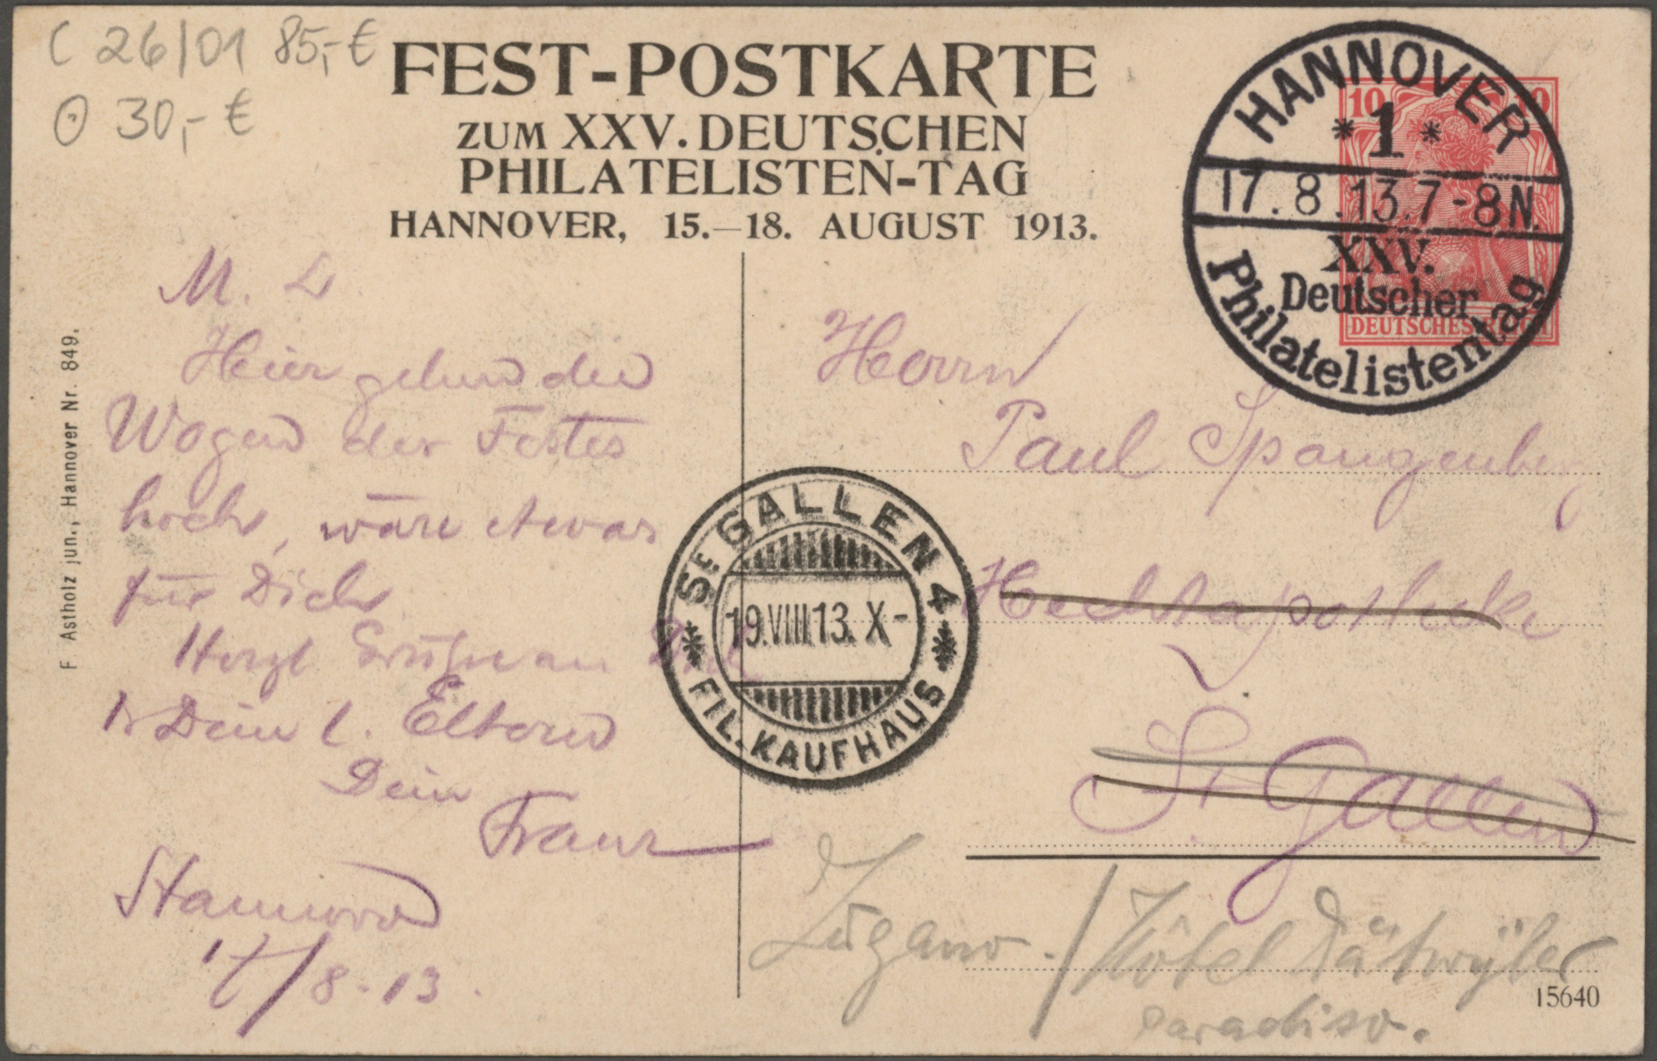 C 26/01 85,-€
⊙ 30,- €
FEST-POSTKARTE
ZUM XXV. DEUTSCHEN
PHILATELISTEN-TAG
HANNOVER, 15.—18. AUGUST 1913.
HANNOVER
* 1 *
17.8.13.7-8N.
XXV.
Deutscher
Philatelistentag
10
DEUTSCHES REICH
F Astholz jun., Hannover Nr. 849.
M. L
Hier gehen die
Wogen des Festes
hoch, wäre etwas
für Dich
Herzl Grüße an Dich
& Dein l. Eltern
Dein
Franz
Hannover
17/8.13.
St GALLEN 4
19.VIII.13. X-
FIL. KAUFHAUS
Herrn
Paul Spangenberg
Hechtapotheke
St. Gallen
Lugano. / Hôtel Dätwyler
Paradiso.
15640